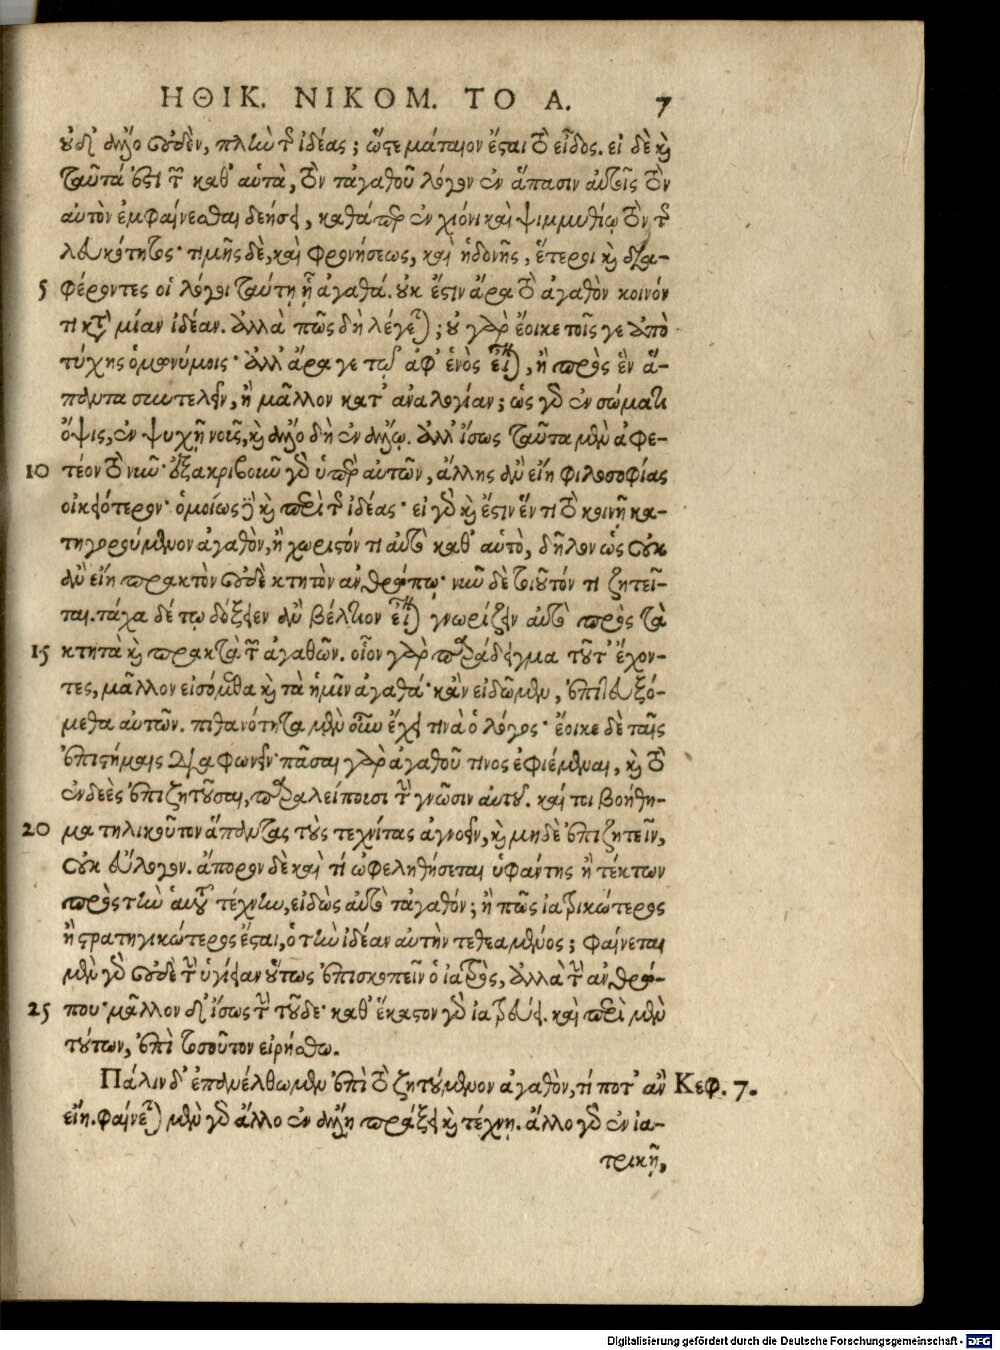 ΗΘΙΚ. ΝΙΚΟΜ. ΤΟ Α. 7
ἢ οὐδ' ἄλλο οὐδὲν, πλὴν τῆς ἰδέας; ὥστε μάταιον ἔσται τὸ εἶδος. εἰ δὲ καὶ
ταῦτά ἐστι τῶν καθ' αὑτὰ, τὸν τἀγαθοῦ λόγον ἐν ἅπασιν αὐτοῖς τὸν
αὐτὸν ἐμφαίνεσθαι δεήσει, καθάπερ ἐν χιόνι καὶ ψιμμυθίῳ τὸν τῆς
λευκότητος· τιμῆς δὲ, καὶ φρονήσεως, καὶ ἡδονῆς, ἕτεροι καὶ δια-
5 φέροντες οἱ λόγοι ταύτῃ ᾗ ἀγαθά. οὐκ ἔστιν ἄρα τὸ ἀγαθὸν κοινόν
τι κατὰ μίαν ἰδέαν. ἀλλὰ πῶς δὴ λέγεται; οὐ γὰρ ἔοικε τοῖς γε ἀπὸ
τύχης ὁμωνύμοις· ἀλλ' ἆρα γε τῷ ἀφ' ἑνὸς εἶναι, ἢ πρὸς ἓν ἅ-
παντα συντελεῖν, ἢ μᾶλλον κατ' ἀναλογίαν; ὡς γὰρ ἐν σώματι
ὄψις, ἐν ψυχῇ νοῦς, καὶ ἄλλο δὴ ἐν ἄλλῳ. ἀλλ' ἴσως ταῦτα μὲν ἀφε-
10 τέον τὸ νῦν· ἐξακριβοῦν γὰρ ὑπὲρ αὐτῶν, ἄλλης ἂν εἴη φιλοσοφίας
οἰκειότερον· ὁμοίως δὲ καὶ περὶ τῆς ἰδέας· εἰ γὰρ καὶ ἔστιν ἕν τι τὸ κοινῇ κα-
τηγορούμενον ἀγαθὸν, ἢ χωριστόν τι αὐτὸ καθ' αὑτὸ, δῆλον ὡς οὐκ
ἂν εἴη πρακτὸν οὐδὲ κτητὸν ἀνθρώπῳ· νῦν δὲ τοιοῦτόν τι ζητεῖ-
ται. τάχα δέ τῳ δόξειεν ἂν βέλτιον εἶναι γνωρίζειν αὐτὸ πρὸς τὰ
15 κτητὰ καὶ πρακτὰ τῶν ἀγαθῶν. οἷον γὰρ παράδειγμα τοῦτ' ἔχον-
τες, μᾶλλον εἰσόμεθα καὶ τὰ ἡμῖν ἀγαθά· κἂν εἰδῶμεν, ἐπιτευξό-
μεθα αὐτῶν. πιθανότητα μὲν οὖν ἔχει τινὰ ὁ λόγος· ἔοικε δὲ ταῖς
ἐπιστήμαις διαφωνεῖν· πᾶσαι γὰρ ἀγαθοῦ τινος ἐφιέμεναι, καὶ τὸ
ἐνδεὲς ἐπιζητοῦσαι, παραλείπουσι τὴν γνῶσιν αὐτοῦ. καί τοι βοήθη-
20 μα τηλικοῦτον ἅπαντας τοὺς τεχνίτας ἀγνοεῖν, καὶ μηδὲ ἐπιζητεῖν,
οὐκ εὔλογον. ἄπορον δὲ καὶ τί ὠφεληθήσεται ὑφάντης ἢ τέκτων
πρὸς τὴν αὑτοῦ τέχνην, εἰδὼς αὐτὸ τἀγαθόν; ἢ πῶς ἰατρικώτερος
ἢ στρατηγικώτερος ἔσται, ὁ τὴν ἰδέαν αὐτὴν τεθεαμένος; φαίνεται
μὲν γὰρ οὐδὲ τὴν ὑγίειαν οὕτως ἐπισκοπεῖν ὁ ἰατρὸς, ἀλλὰ τὴν ἀνθρώ-
25 που· μᾶλλον δ' ἴσως τὴν τοῦδε· καθ' ἕκαστον γὰρ ἰατρεύει. καὶ περὶ μὲν
τούτων, ἐπὶ τοσοῦτον εἰρήσθω.
Πάλιν δ' ἐπανέλθωμεν ἐπὶ τὸ ζητούμενον ἀγαθὸν, τί ποτ' ἂν Κεφ. 7.
εἴη. φαίνεται μὲν γὰρ ἄλλο ἐν ἄλλῃ πράξει καὶ τέχνῃ. ἄλλο γὰρ ἐν ἰα-
τρικῇ,
Digitalisierung gefördert durch die Deutsche Forschungsgemeinschaft - DFG